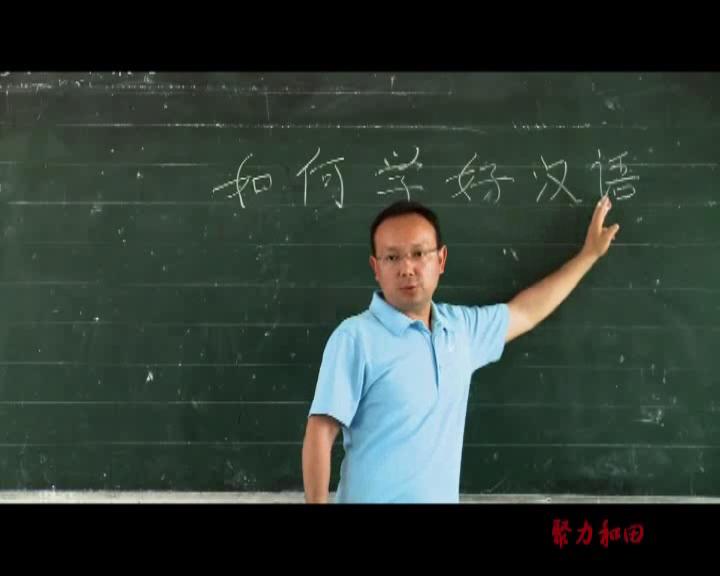 如何学好汉语
聚力和田